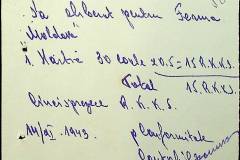 S'a eliberat pentru Ferma
Moldova
1. Hârtie 30 coale x 0.5 = 15 R.K.K.S.
Total 15 R.K.K.
Cincisprezece R.K.K.S.
14/XI.1943.
p. Conformitate